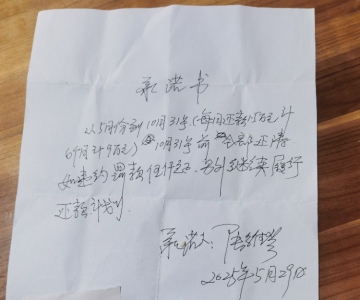 承诺书
从5月份到10月31号(每月还款1.5万元 计
6个月计9万元) 10月31号前全部还清
如违约 罚款伍仟元 另外继续履行
还款计划
承诺人:
2025年5月29日